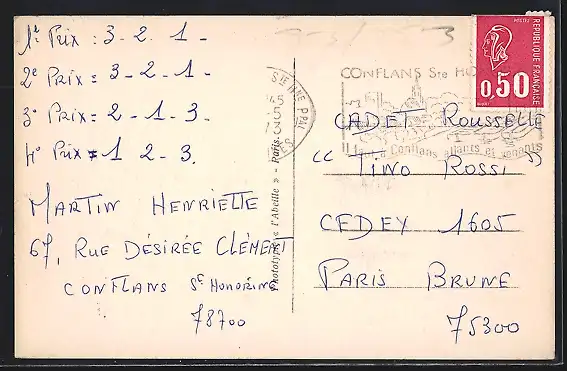 1e Prix : 3 - 2. 1 -
2e Prix = 3 - 2 - 1 -
3e Prix : 2 - 1 - 3 -
4e Prix = 1 2 - 3.
MARTIN HENRIETTE
67, RUE DÉSIRÉE CLÉMENT
CONFLANS Ste HONORINE
78700
Phototypie « l'Abeille » - Paris
POSTES
REPUBLIQUE FRANÇAISE
0,50
CONFLANS Ste HO
allants et venants
CADET ROUSSELLE
" TINO ROSSI "
CEDEY 1605
PARIS BRUNE
75300